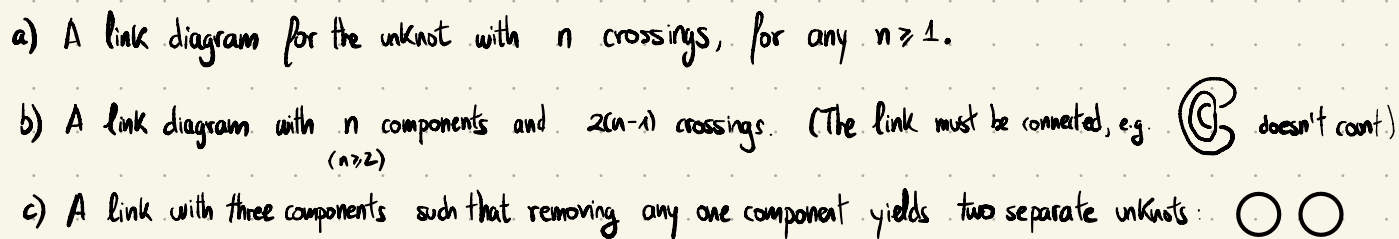 a) A link diagram for the unknot with n crossings, for any n ≥ 1.
b) A link diagram with n components and 2(n-1) crossings. (The link must be connected, e.g. doesn't count)
(n ≥ 2)
c) A link with three components such that removing any one component yields two separate unknots: